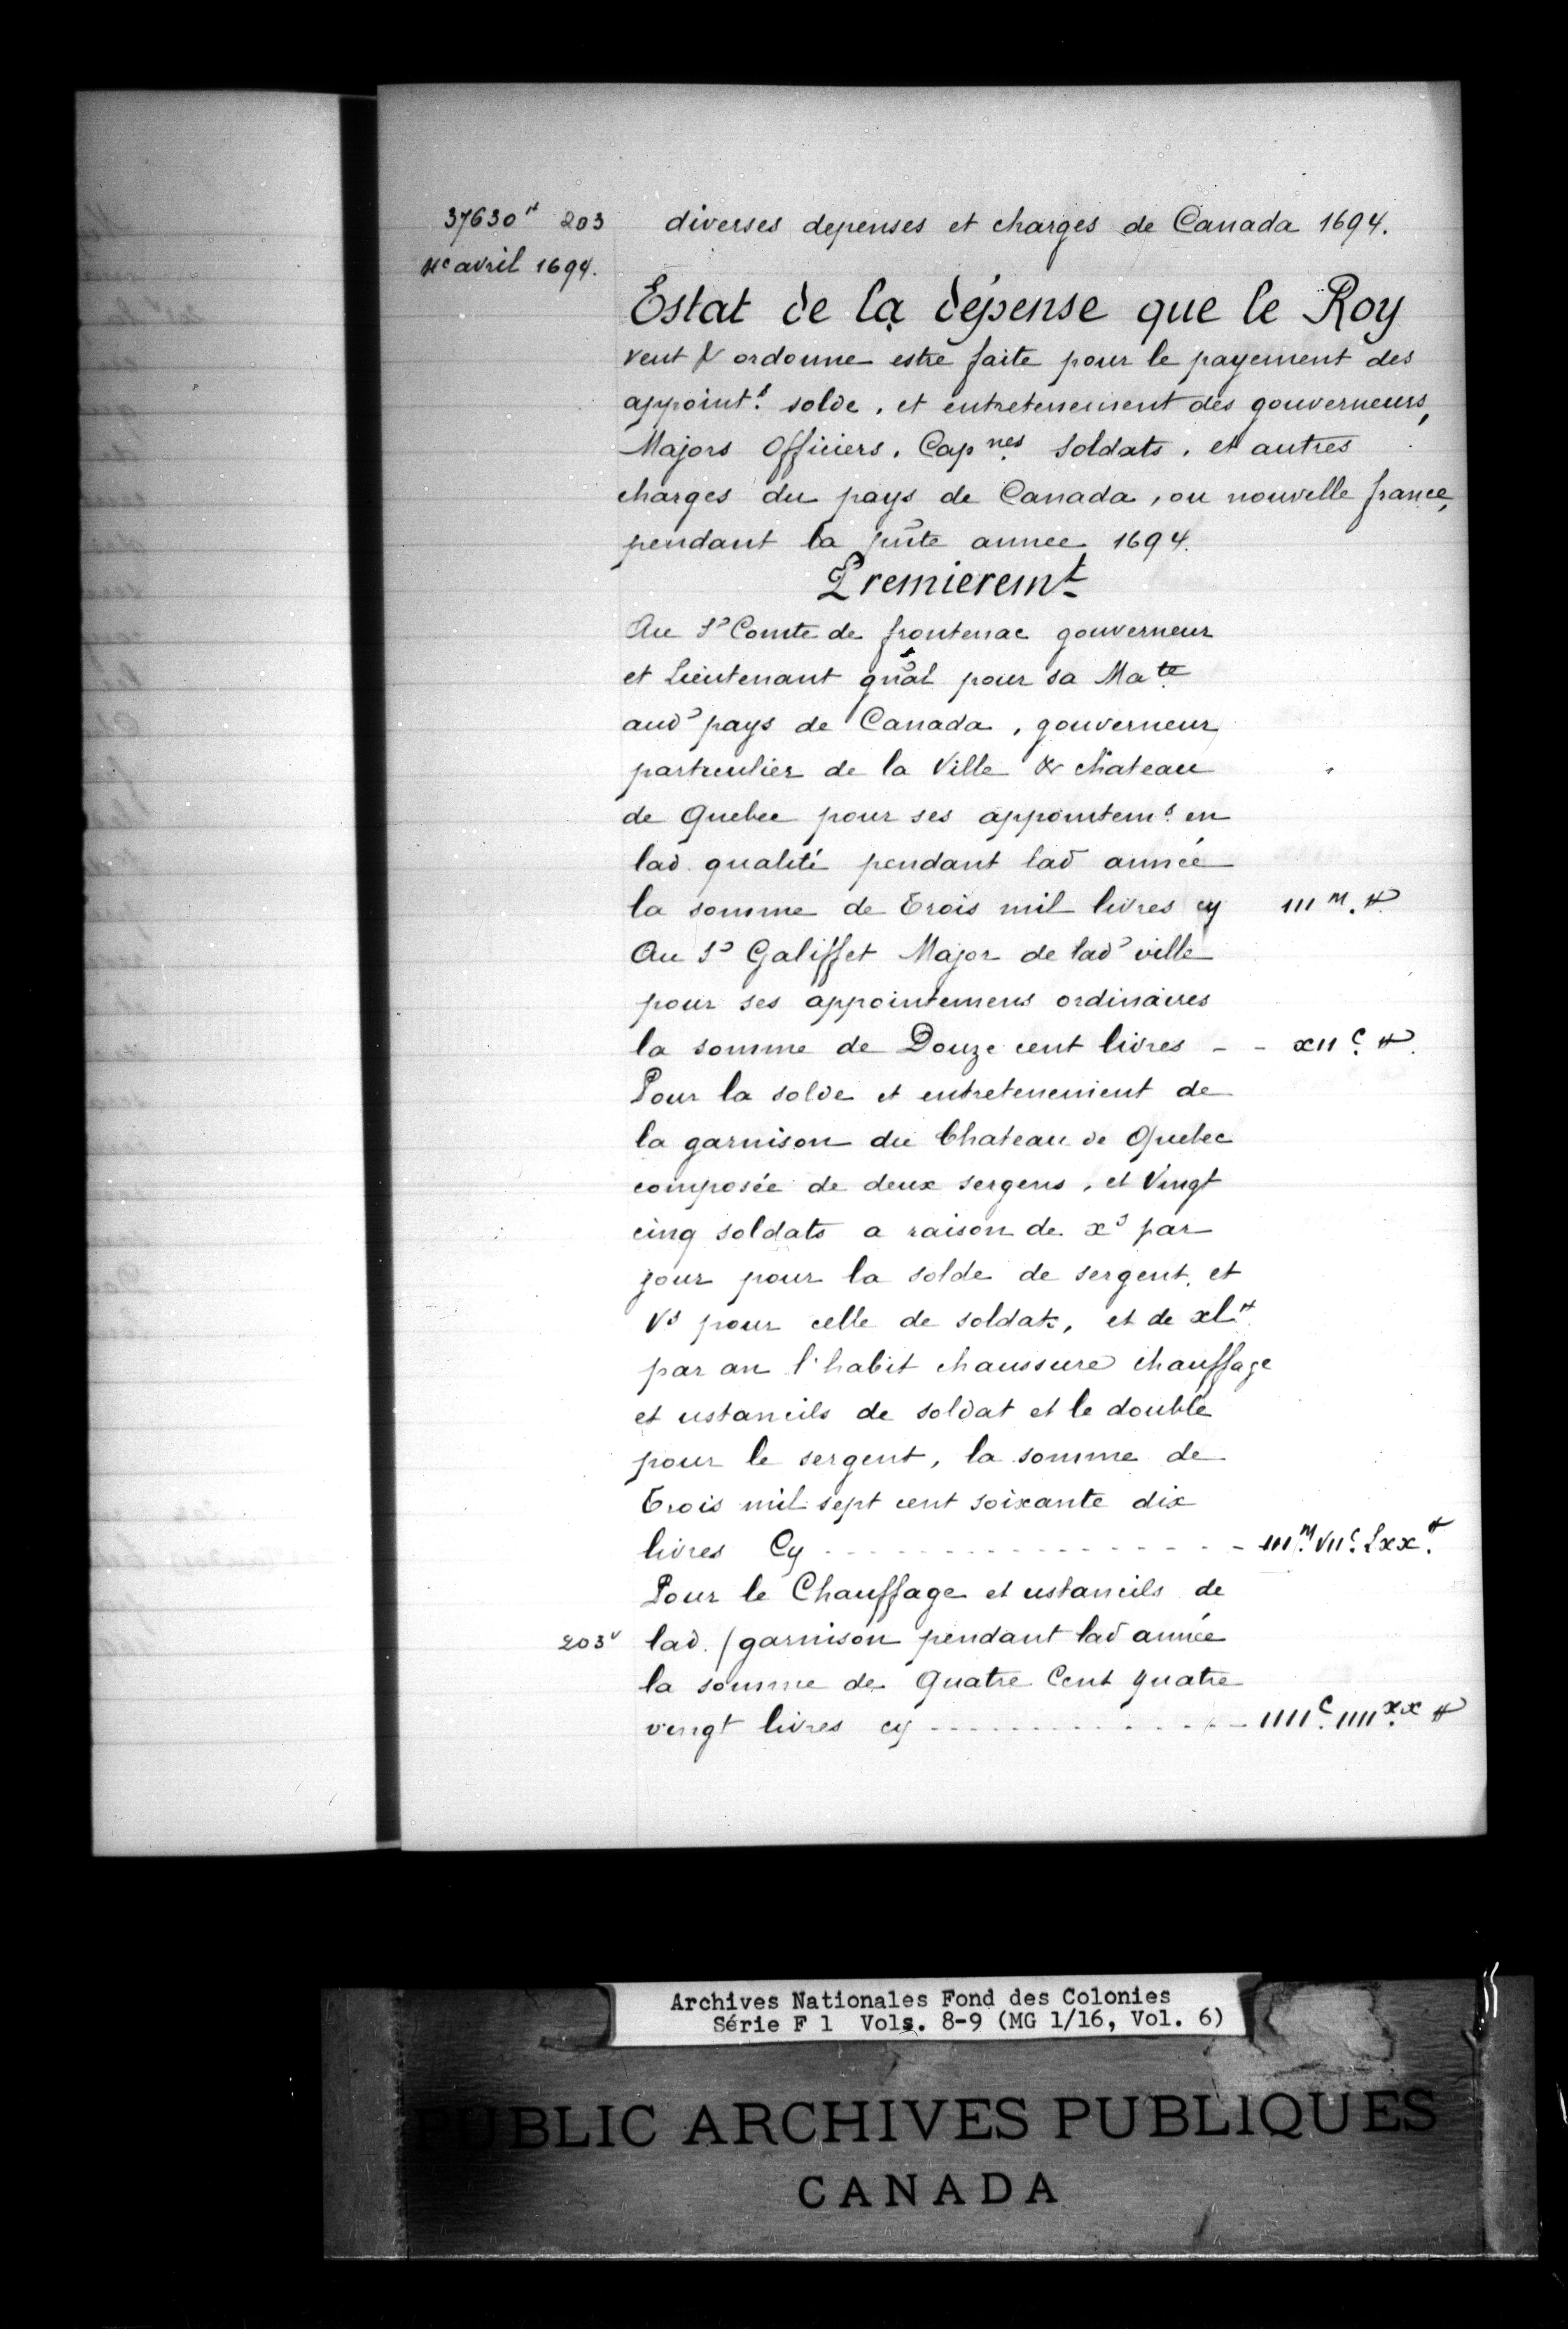 37630# 203 diverses depenses et charges de Canada 1694.
avril 1694.
Estat de la dépense que le Roy
veut & ordonne estre faite pour le payement des
appoint.s solde, et entretenement des gouverneurs,
Majors Officiers, Cap.nes Soldats, et autres
charges du pays de Canada, ou nouvelle france,
pendant la pñte année 1694.
Premieremt
Au Sr Comte de frontenac gouverneur
et Lieutenant gñal pour sa Mate
aud pays de Canada, gouverneur
particulier de la Ville & chateau
de Quebec pour ses appointem.s en
lad. qualité pendant lad année
la somme de Trois mil livres cy III M. #
Au Sr Galiffet Major de lad ville
pour ses appointemens ordinaires
la somme de Douze cent livres - - XII C. #
Pour la solde et entretenement de
la garnison du Chateau de Quebec
composée de deux sergens, et Vingt
cinq soldats a raison de xs par
jour pour la solde de sergent, et
Vs pour celle de soldat, et de xl#
par an l'habit chaussure chauffage
et ustancils de soldat et le double
pour le sergent, la somme de
Trois mil sept cent soixante dix
livres Cy - - - - - III M. VII C. Lxx #
Pour le Chauffage et ustancils de
203v lad. / garnison pendant lad année
la somme de Quatre Cent quatre
vingt livres cy - - - - - IIII C. IIII xx #
Archives Nationales Fond des Colonies
Série F 1 Vols. 8-9 (MG 1/16, Vol. 6)
PUBLIC ARCHIVES PUBLIQUES
CANADA